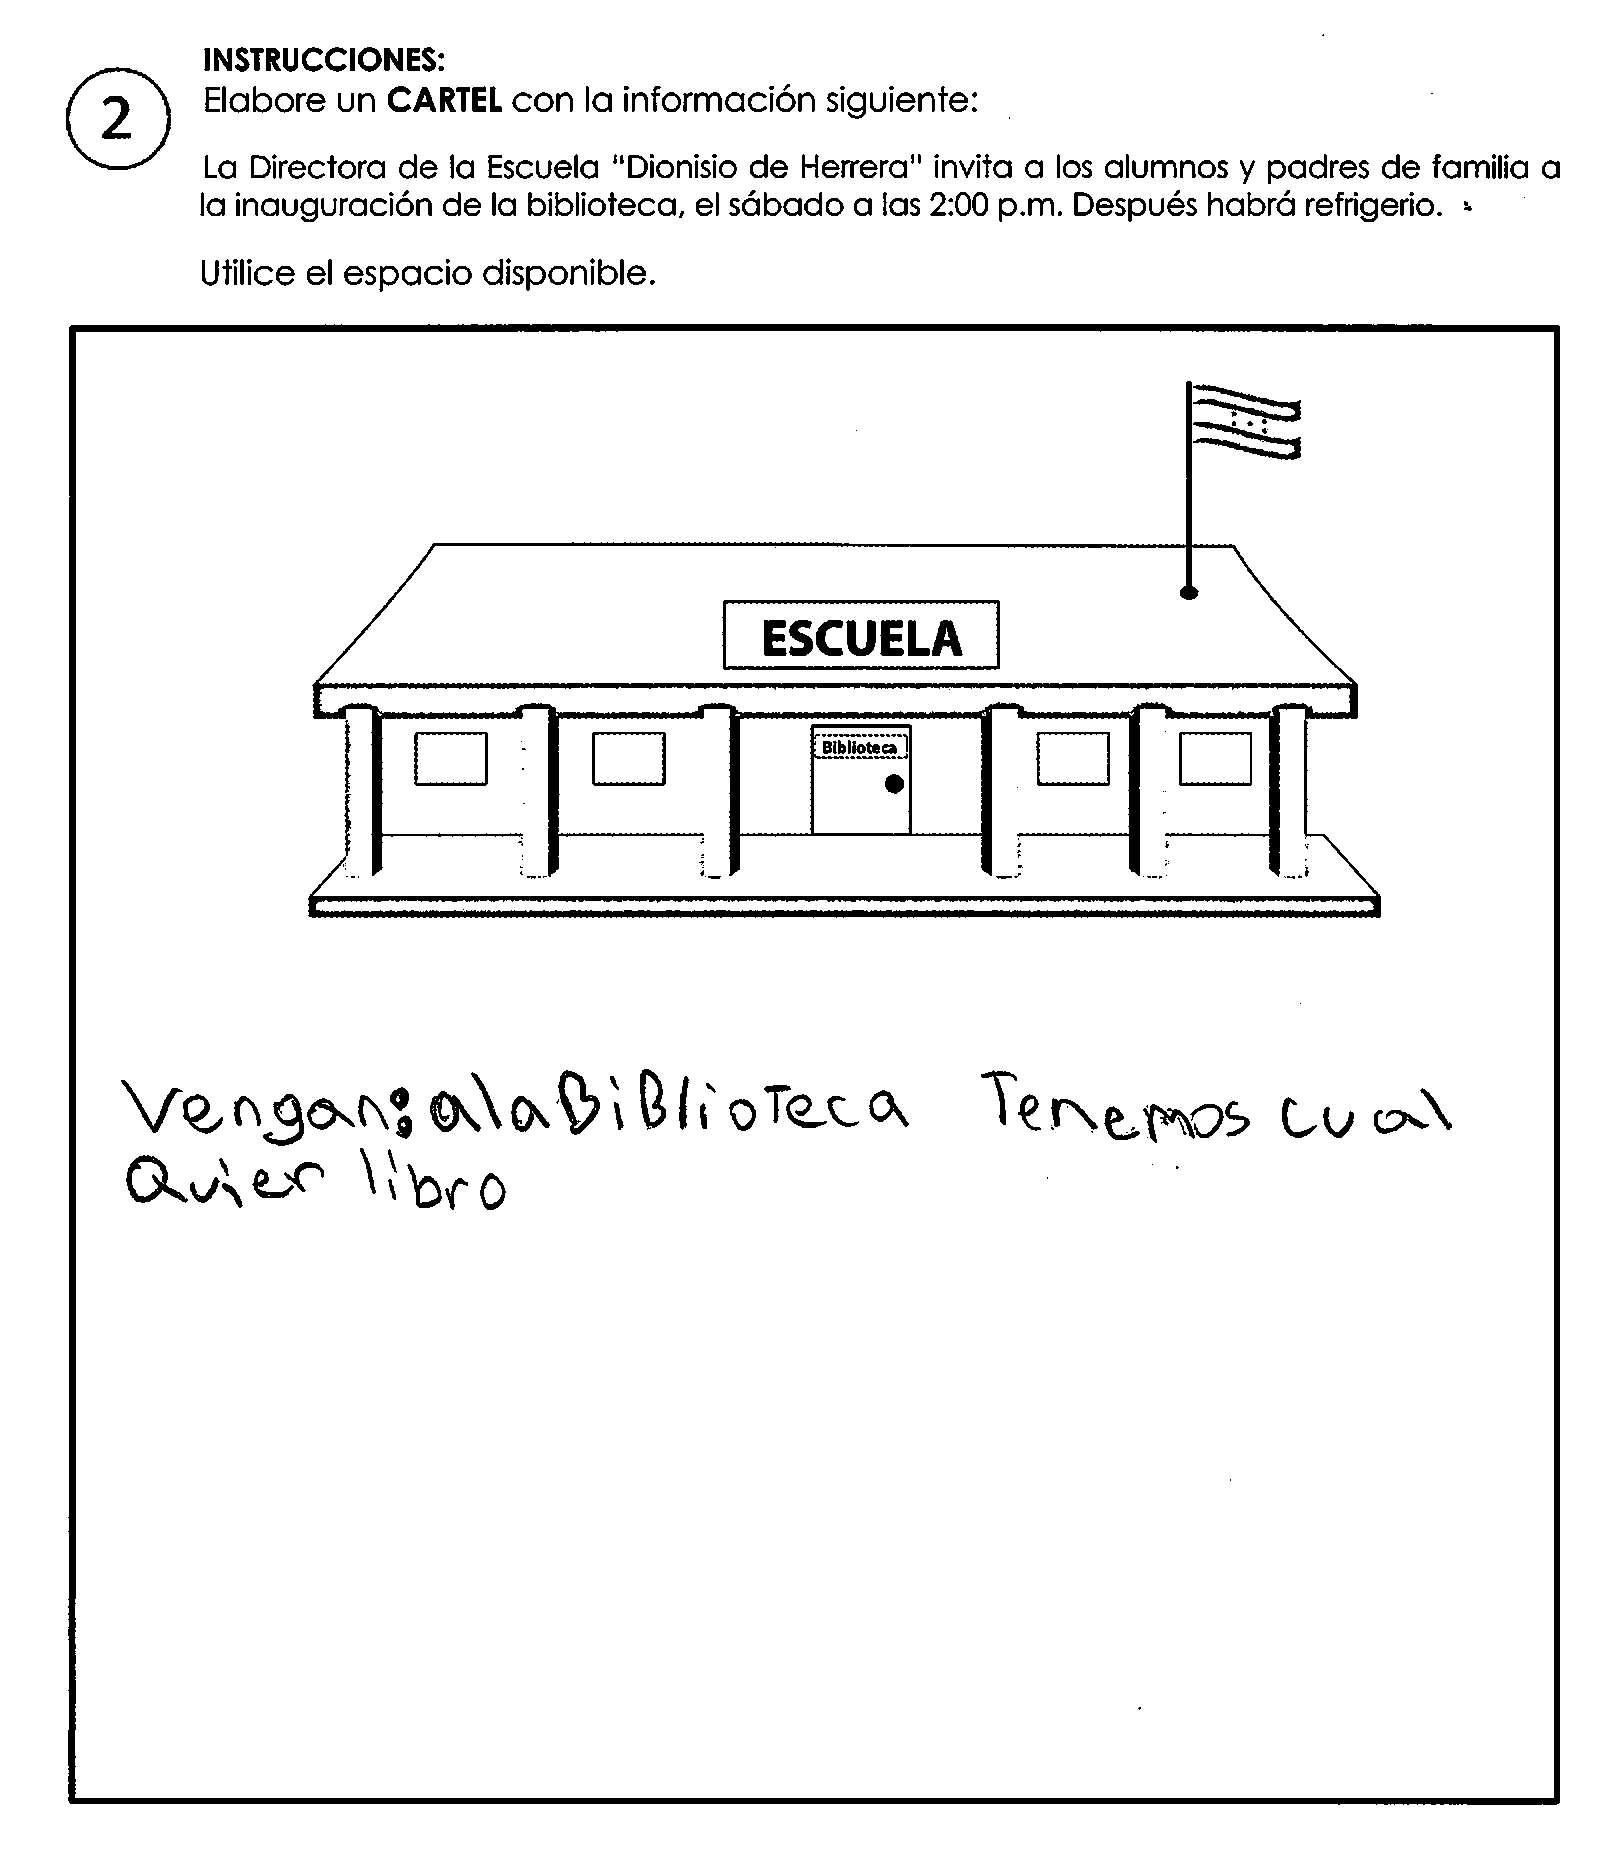 INSTRUCCIONES:
2
Elabore un CARTEL con la información siguiente:
La Directora de la Escuela "Dionisio de Herrera" invita a los alumnos y padres de familia a
la inauguración de la biblioteca, el sábado a las 2:00 p.m. Después habrá refrigerio.
Utilice el espacio disponible.
ESCUELA
Biblioteca
Vengan: a la BiBlioTeca Tenemos cual
Quier libro